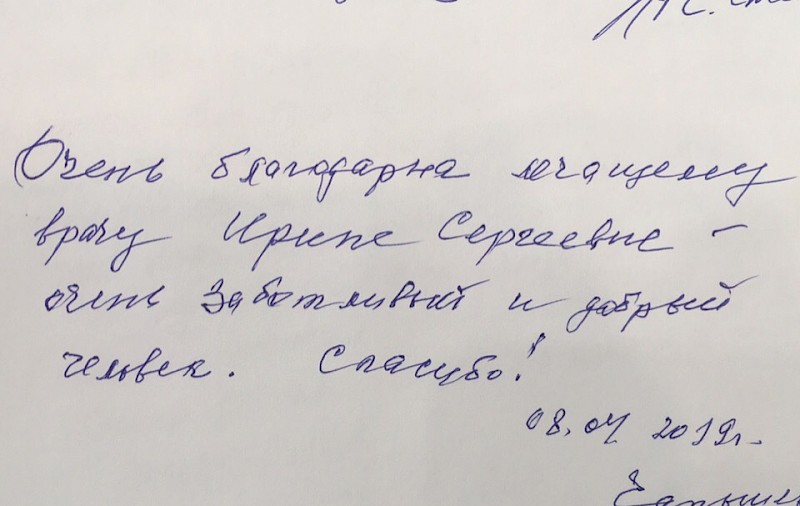 Очень благодарна лечащему
врачу Ирине Сергеевне -
очень заботливый и добрый
человек. Спасибо!
08.04 2019г.